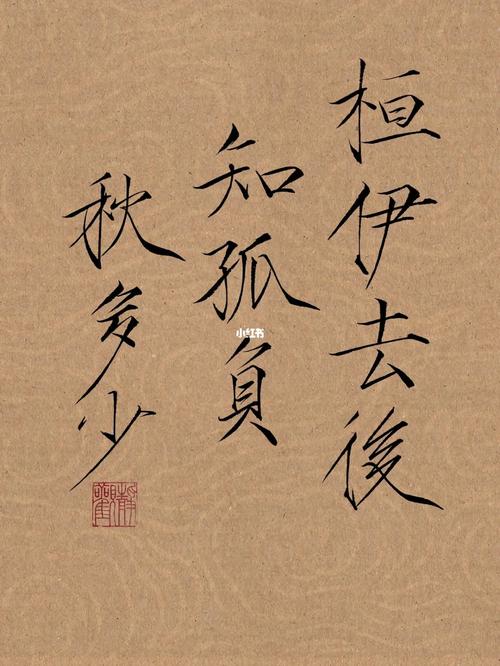 桓伊去後
知孤負
秋多少
小红书